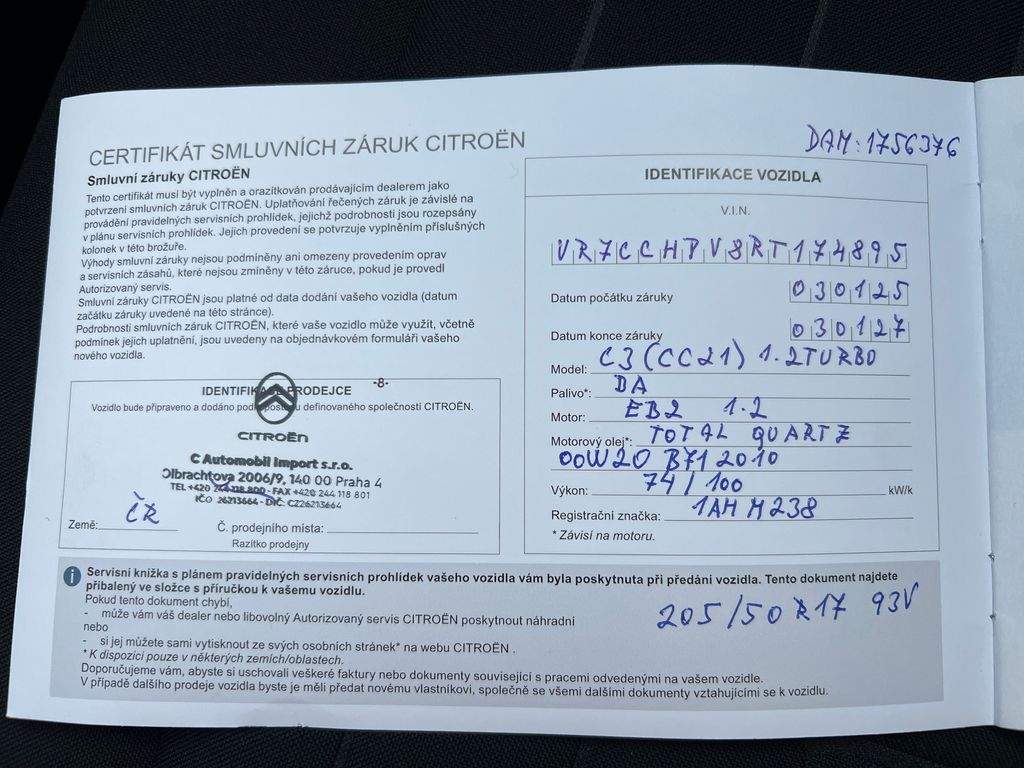 CERTIFIKÁT SMLUVNÍCH ZÁRUK CITROËN
Smluvní záruky CITROËN
Tento certifikát musí být vyplněn a orazítkován prodávajícím dealerem jako
potvrzení smluvních záruk CITROËN. Uplatňování řečených záruk je závislé na
provádění pravidelných servisních prohlídek, jejichž podrobnosti jsou rozepsány
v plánu servisních prohlídek. Jejich provedení se potvrzuje vyplněním příslušných
kolonek v této brožuře.
Výhody smluvní záruky nejsou podmíněny ani omezeny provedením oprav
a servisních zásahů, které nejsou zmíněny v této záruce, pokud je provedl
Autorizovaný servis.
Smluvní záruky CITROËN jsou platné od data dodání vašeho vozidla (datum
začátku záruky uvedené na této stránce).
Podrobnosti smluvních záruk CITROËN, které vaše vozidlo může využít, včetně
podmínek jejich uplatnění, jsou uvedeny na objednávkovém formuláři vašeho
nového vozidla.
IDENTIFIKACE PRODEJCE -8-
Vozidlo bude připraveno a dodáno podle definovaného společností CITROËN.
CITROËN
C Automobil Import s.r.o.
Olbrachtova 2006/9, 140 00 Praha 4
TEL +420 244 118 800 - FAX +420 244 118 801
IČO 26213664 - DIČ: CZ26213664
Země: ČR
Č. prodejního místa:
Razítko prodejny
DAM: 1756376
IDENTIFIKACE VOZIDLA
V.I.N.
VR7CCHPV8RT174895
Datum počátku záruky 030125
Datum konce záruky 030127
Model: C3 (CC21) 1.2TURBO
Palivo*: BA
Motor: EB2 1.2
Motorový olej*: TOTAL QUARTZ
00W20 B71 2010
Výkon: 74/100 kW/k
Registrační značka: 1AH M238
* Závisí na motoru.
i Servisní knížka s plánem pravidelných servisních prohlídek vašeho vozidla vám byla poskytnuta při předání vozidla. Tento dokument najdete
přibalený ve složce s příručkou k vašemu vozidlu.
Pokud tento dokument chybí,
- může vám váš dealer nebo libovolný Autorizovaný servis CITROËN poskytnout náhradní
nebo
- si jej můžete sami vytisknout ze svých osobních stránek* na webu CITROËN .
* K dispozici pouze v některých zemích/oblastech.
Doporučujeme vám, abyste si uschovali veškeré faktury nebo dokumenty související s pracemi odvedenými na vašem vozidle.
V případě dalšího prodeje vozidla byste je měli předat novému vlastníkovi, společně se všemi dalšími dokumenty vztahujícími se k vozidlu.
205/50 R17 93V